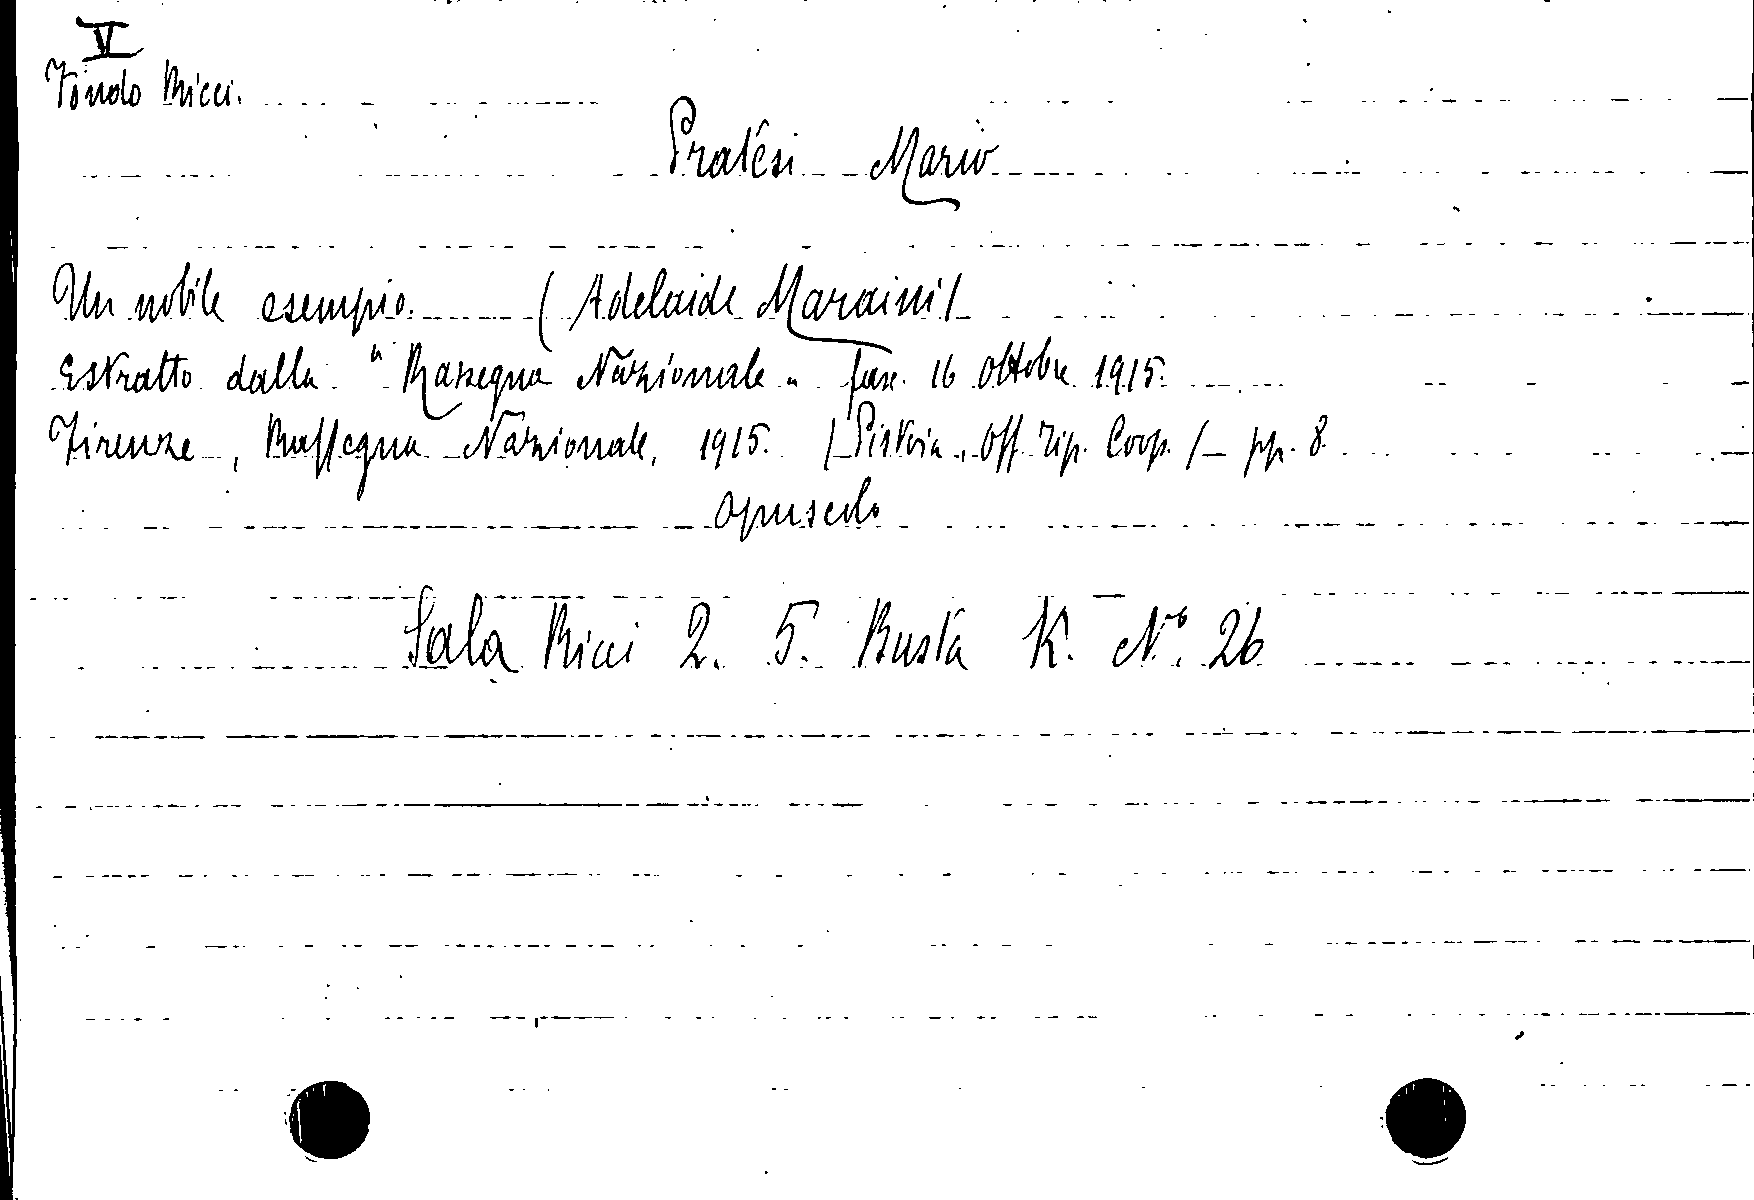 V
Fondo Ricci.
Pratesi Mario
Un nobile esempio. (Adelaide Maraini)
Estratto dalla "Rassegna Nazionale" fasc. 16 Ottobre 1915.
Firenze, Rassegna Nazionale, 1915. (Pistoia, Off. Tip. Coop.) pp. 8
opuscolo
Sala Ricci 2. 5. Busta K. N.° 26